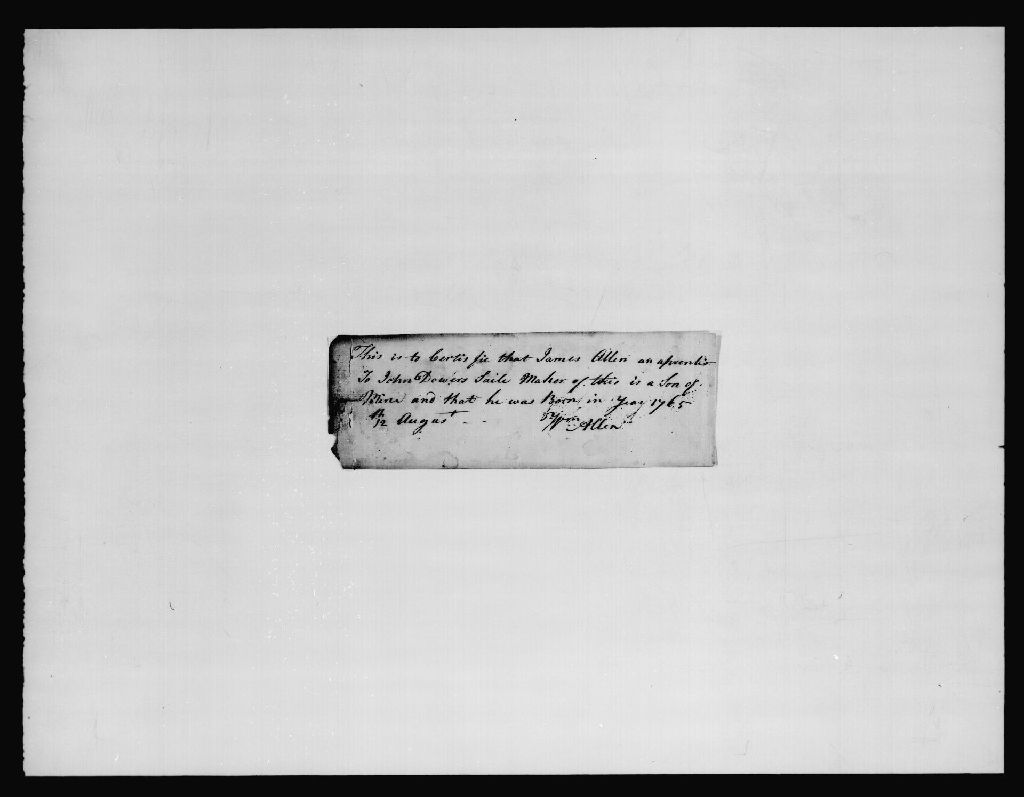 This is to Certis fie that James Allen an aprentis
To John Dowers Saile Maker of this is a Son of
Mine and that he was Born in Yeay 1765
12 August - - Wm Allen